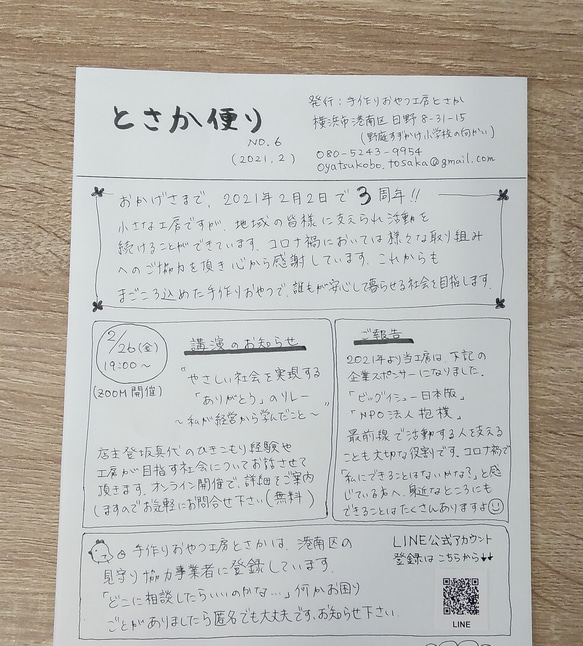 とさか便り
NO.6
(2021.2)
発行:手作りおやつ工房とさか
横浜市港南区日野8-31-15
(野庭すずかけ小学校の向かい)
080-5243-9954
oyatsukobo.tosaka@gmail.com
おかげさまで、2021年2月2日で3周年!!
小さな工房ですが、地域の皆様に支えられ活動を
続けることができています。コロナ禍においては様々な取り組み
へのご協力を頂き心から感謝しています。これからも
まごころ込めた手作りおやつで、誰もが安心して暮らせる社会を目指します。
2/26(金)
19:00~
(ZOOM開催)
講演のお知らせ
"やさしい社会を実現する
「ありがとう」のリレー
~私が経営から学んだこと~"
店主登坂真代のひきこもり経験や
工房が目指す社会についてお話させて
頂きます。オンライン開催で、詳細をご案内
しますのでお気軽にお問合せ下さい(無料)
ご報告
2021年より当工房は下記の
企業スポンサーになりました。
「ビッグイシュー日本版」
「NPO法人抱樸」
最前線で活動する人を支える
ことも大切な役割です。コロナ禍で
「私にできることはないかな?」と感
じている方へ、身近なところにも
できることはたくさんありますよ
手作りおやつ工房とさかは、港南区の
見守り協力事業者に登録しています。
「どこに相談したらいいのかな…」何かお困り
ごとがありましたら匿名でも大丈夫です。お知らせ下さい。
LINE公式アカウント
登録はこちらから↓↓
LINE